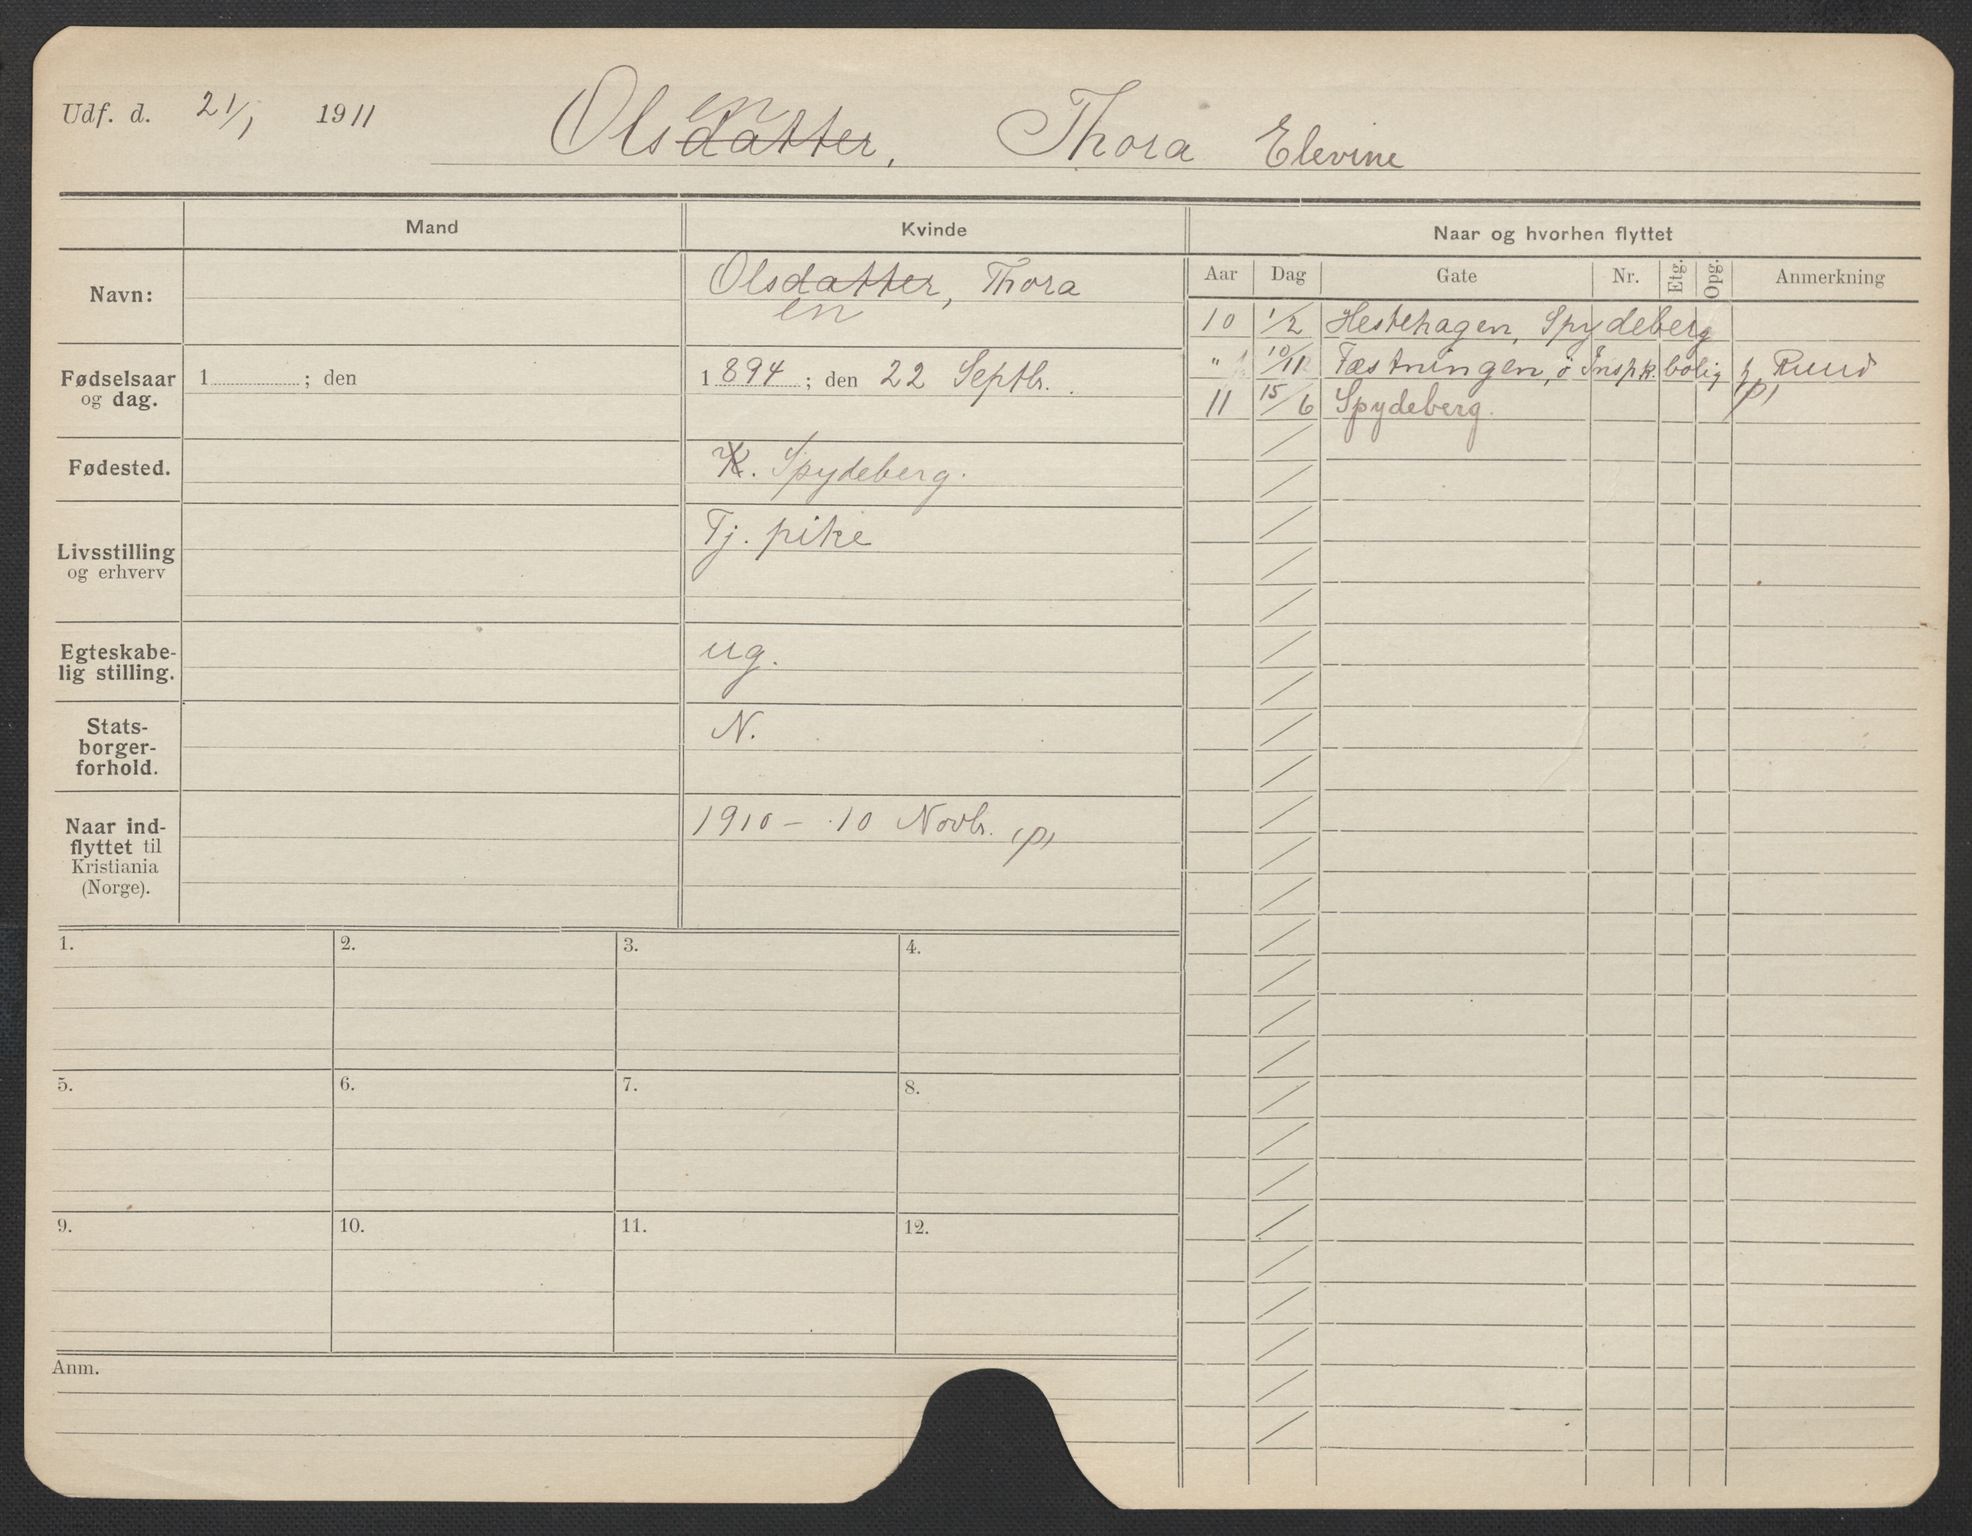 Udf. d. 21/1 1911
Olsdatter, Thora Elevine
en
Mand
Kvinde
Naar og hvorhen flyttet
Navn:
Olsdatter, Thora
en
Fødselsaar og dag.
1 ; den
1 894 ; den 22 Septbr.
Fødested.
K. Spydeberg.
Livsstilling og erhverv
Tj. pike
Egteskabe-
lig stilling.
ug.
Stats-
borger-
forhold.
N.
Naar ind-
flyttet til
Kristiania
(Norge).
1910 - 10 Novbr. (p)
Aar Dag Gate Nr. Etg. Opg. Anmerkning
10 1/2 Hestehagen, Spydeberg
" 10/11 Fæstningen, ö Inspk. bolig Ruud
(p)
11 15/6 Spydeberg.
1. 2. 3. 4.
5. 6. 7. 8.
9. 10. 11. 12.
Anm.